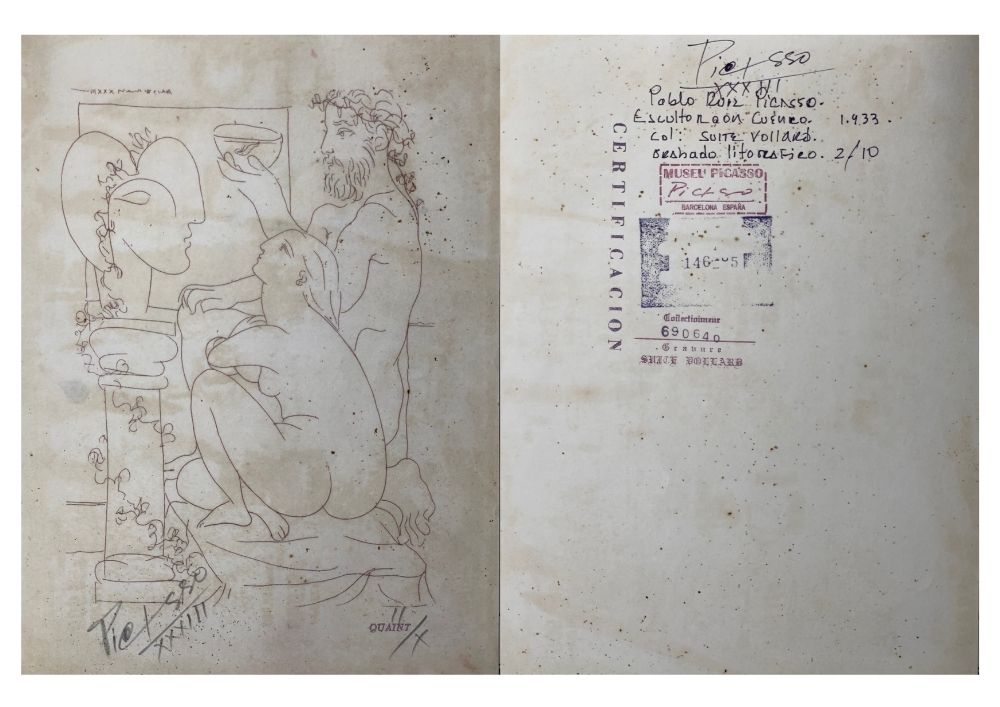 Picasso
XXXIII
II/X
QUAINT
Picasso
XXXIII
Pablo Ruiz Picasso.
Escultor con Cuenco. 1.933.
Col: SUITE Vollard.
Grabado litografico. 2/10
CERTIFICACION
MUSEU PICASSO
Picasso
BARCELONA ESPAÑA
Collectionneur
690640
Gravure
SUITE VOLLARD